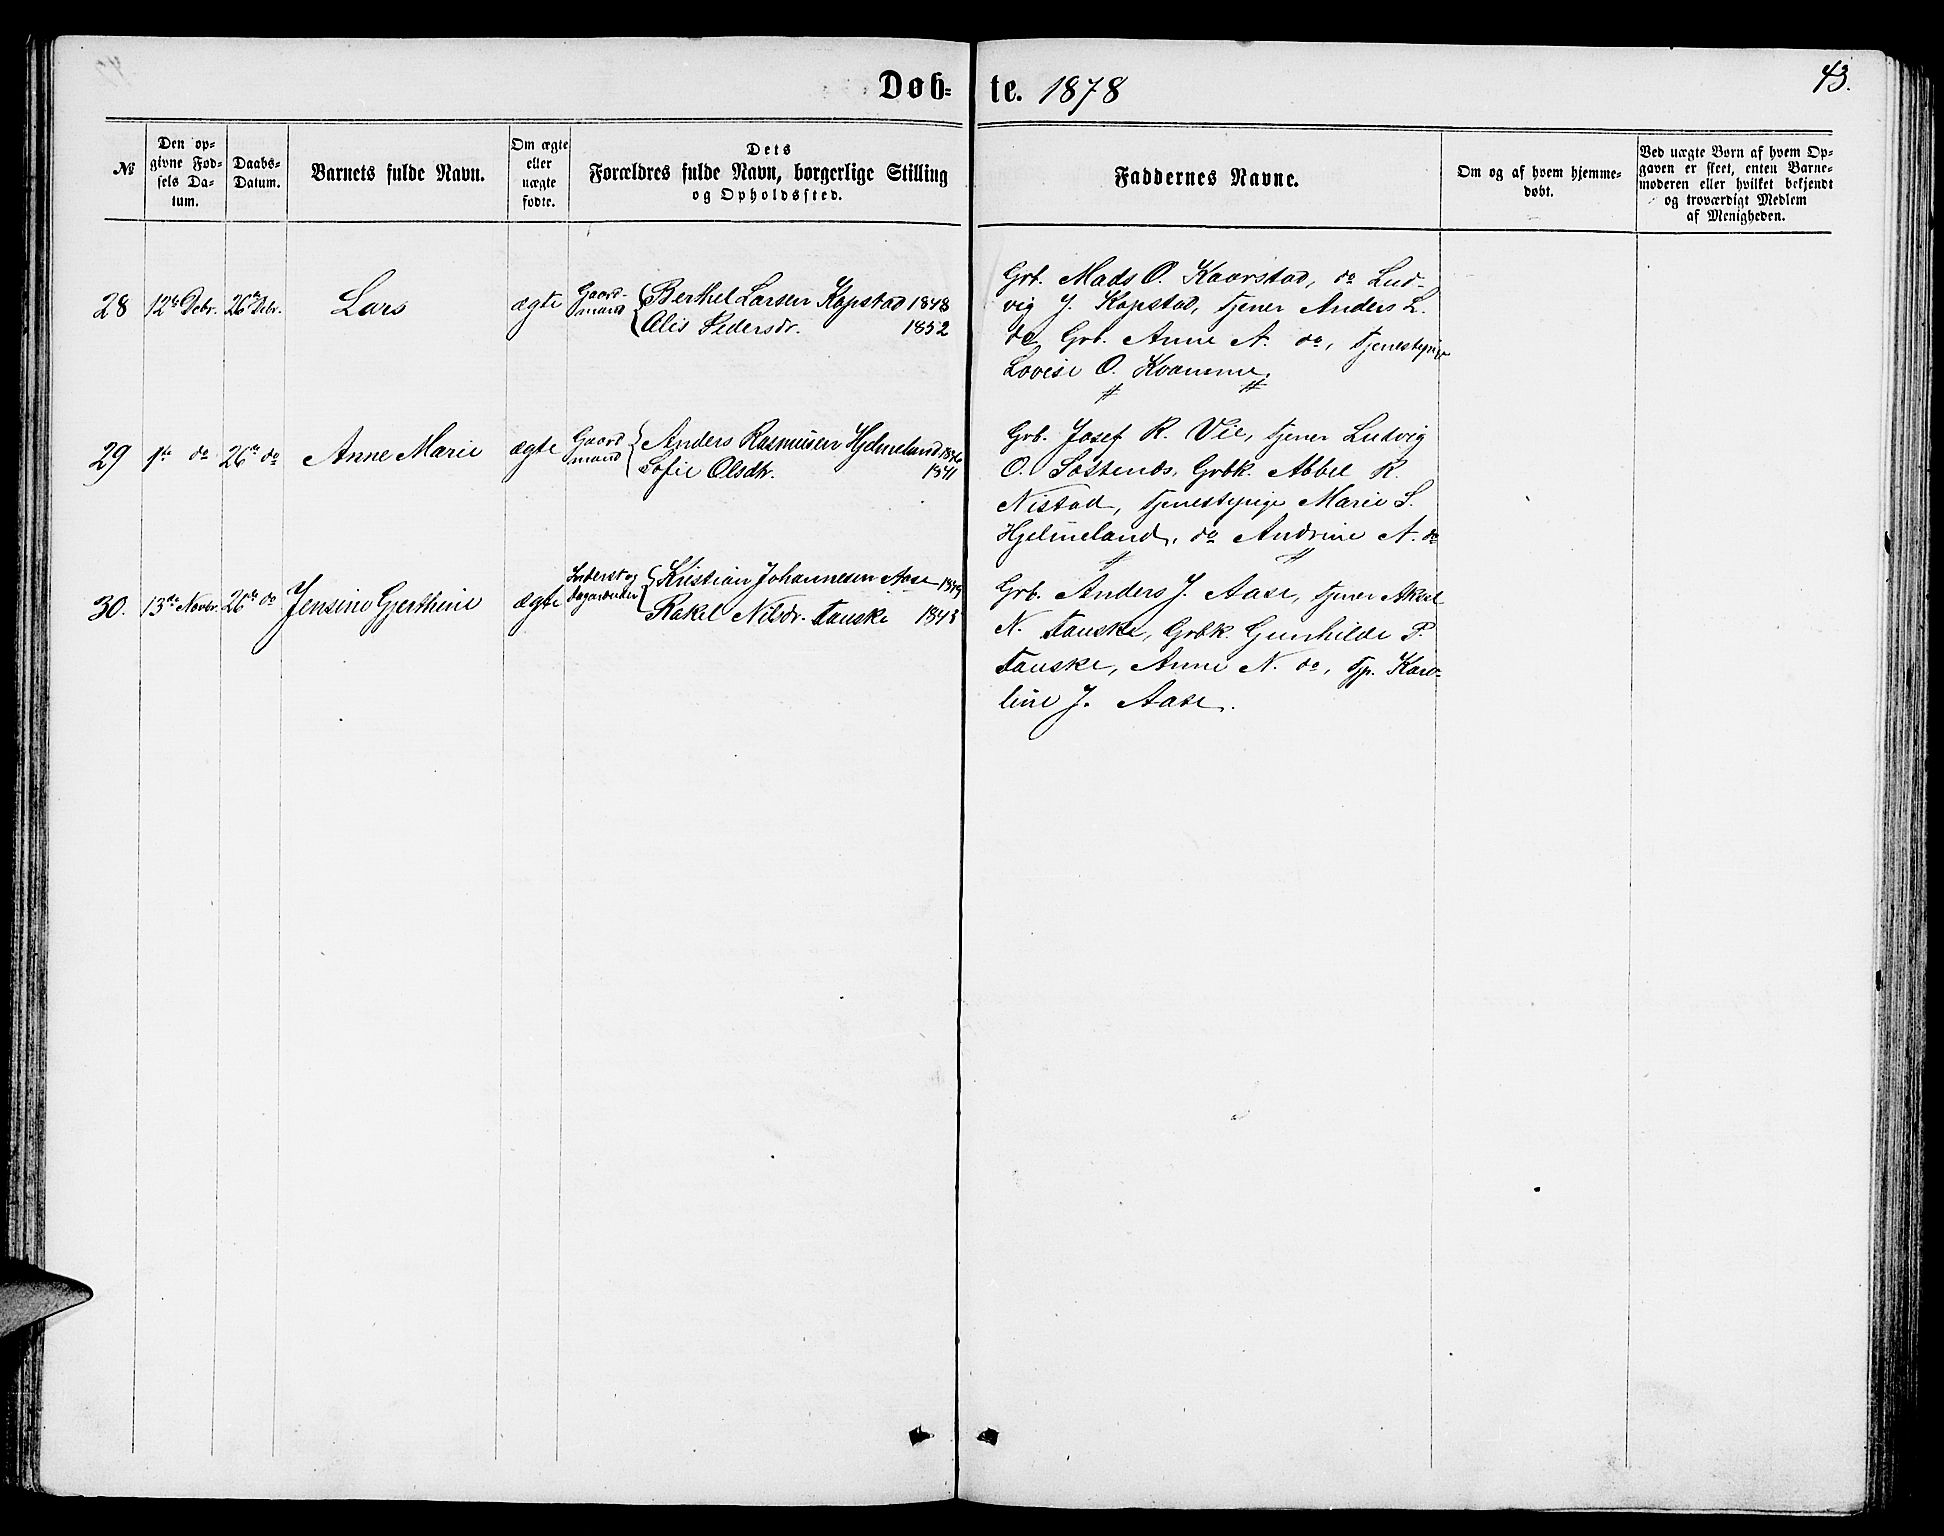 Døb- te. 1878
43.
№
Den op-
givne Fød-
sels Da-
tum.
Daabs-
Datum.
Barnets fulde Navn.
Om ægte
eller
uægte
fødte.
Dets
Forældres fulde Navn, borgerlige Stilling
og Opholdssted.
Faddernes Navne.
Om og af hvem hjemme-
døbt.
Ved uægte Børn af hvem Op-
gaven er skeet, enten Barne-
moderen eller hvilket bekjendt
og troværdigt Medlem
af Menigheden.
28 12te Debr. 26de Debr. Lars ægte Gaard-
mand
Berthel Larsen Kopstad 1848
Alis Pedersdr. 1852
Grb. Mads O. Kaarstad, do Lud-
vig J. Kopstad, tjener Anders L.
do, Grb. Anne A. do, tjenestepige
Lovise O. Kvamme.
29 1ste do 26de do Anne Marie ægte Gaard
mand
Anders Rasmusen Hjelmeland
Sofie Olsdtr. 1841
Grb. Josef R. Vie, tjener Ludvig
O. Sostends, Grbk. Abbel R.
Nistad, tjenestepige Marie S.
Hjelmeland, do Andrine A. do
30. 13de Novbr. 26de do Jensine Gjerthine ægte Inderst og
Dagarbeider
Kristian Johannesen Aase 1849
Rakel Nilsdr. Fauske 1848
Grb. Anders J. Aase, tjener Aksel
N. Fauske, Grbk. Gunhilde P.
Fauske, Anne N. do, tjp. Karo-
line J. Aase.